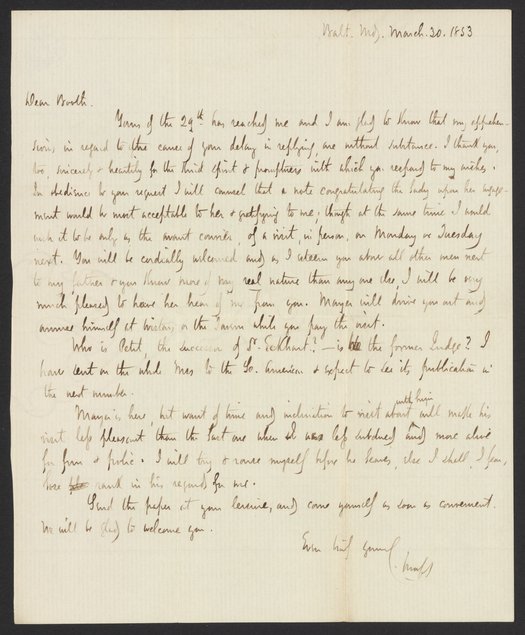 Balt. Md. March. 30. 1853
Dear Booth.
Yours of the 29th has reached me and I am glad to know that my apprehen-
sions in regard to the cause of your delay in replying are without substance. I thank you,
too, sincerely & heartily for the kind spirit & promptness with which you respond to my wishes.
In obedience to your request I will counsel that a note congratulating the lady upon her engage-
ment would be most acceptable to her & gratifying to me; though at the same time I would
wish it to be only as the avant courier, of a visit, in person, on Monday or Tuesday
next. You will be cordially welcomed and as I esteem you above all other men next
to my father & you know more of my real nature than any one else, I will be very
much pleased to have her hear of me from you. Mayer will drive you out and
amuse himself at the tavern while you pay the visit.
Who is Petit, the successor of Dr. Eckhart? — is the former Judge? I
have sent on the whole Mss to the Am. American & expect to see its publication in
the next number.
Mayer is here, but want of time and inclination to visit about with him will make his
visit less pleasant than the last one when I was less subdued and more alive
for fun & frolic. I will try & rouse myself before he leaves, else I shall, I fear,
lose rank in his regard for me.
Send the paper at your leisure, and come yourself as soon as convenient.
We will be glad to welcome you.
Ever truly yours,